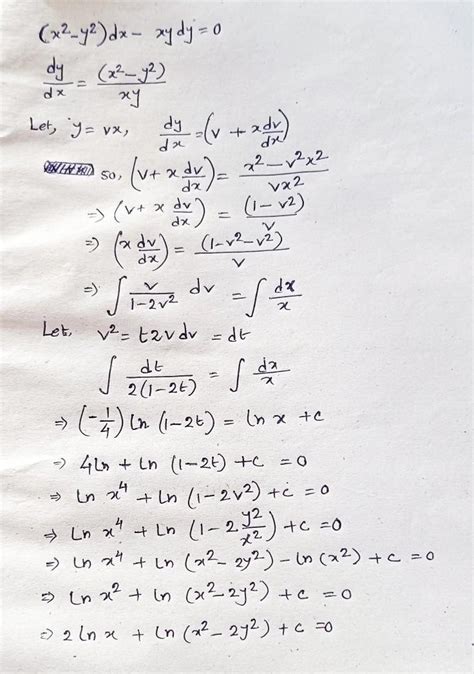 (x²-y²)dx - xydy=0
dy/dx = (x²-y²)/xy
Let, y= vx, dy/dx=(v + xdv/dx)
so, (v+x dv/dx)= x²-v²x²/vx²
=> (v+ x dv/dx) = (1-v²)/v
=> (x dv/dx)= (1-v²-v²)/v
=> ∫ v/1-2v² dv = ∫ dx/x
Let, v²= t2vdv =dt
∫ dt/2(1-2t) = ∫ dx/x
=> (-1/4) ln (1-2t) = ln x +c
=> 4ln + ln (1-2t) +c =0
=> ln x⁴ + ln (1-2v²) +c =0
=> ln x⁴ + ln (1-2 y²/x²) +c =0
=> ln x⁴ + ln (x²-2y²) -ln(x²) +c =0
=> ln x² + ln (x²-2y²) +c =0
=> 2 ln x + ln (x²-2y²) +c =0